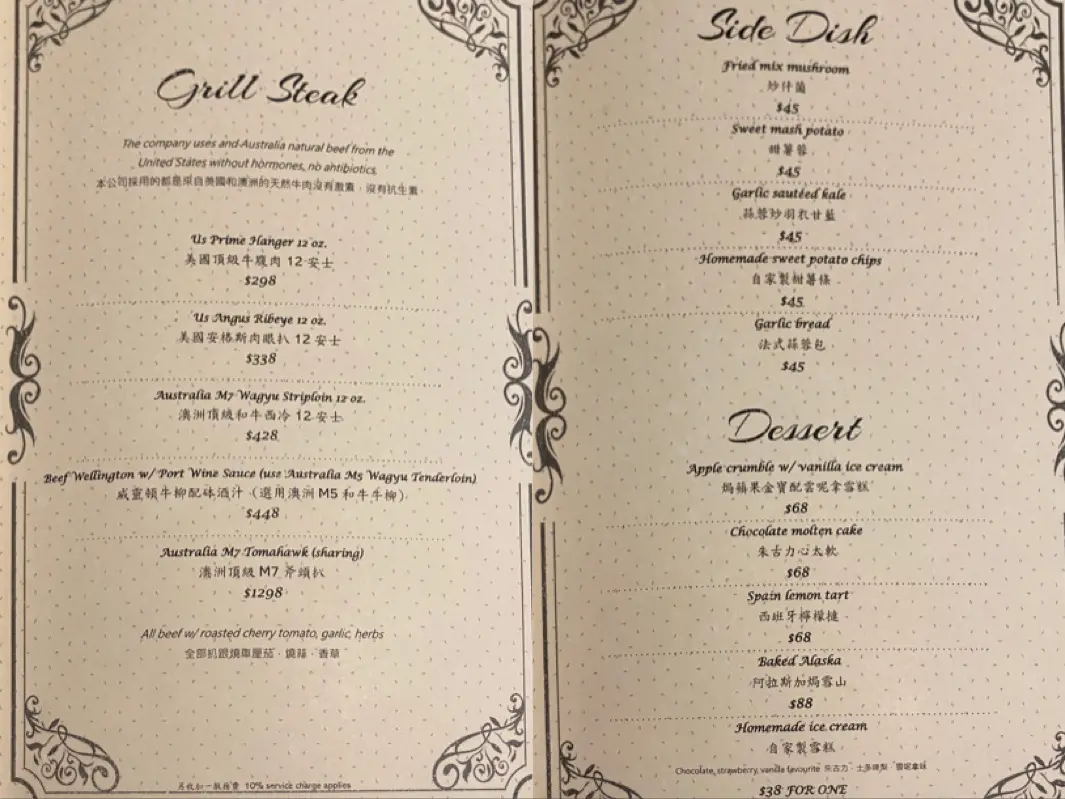 Grill Steak
The company uses and Australia natural beef from the
United States without hormones, no antibiotics.
本公司採用的都是來自美國和澳洲的天然牛肉沒有激素，沒有抗生素
Us Prime Hanger 12 oz.
美國頂級牛腹肉 12 安士
$298
Us Angus Ribeye 12 oz.
美國安格斯肉眼扒 12 安士
$338
Australia M7 Wagyu Striploin 12 oz.
澳洲頂級和牛西冷 12 安士
$428
Beef Wellington w/ Port Wine Sauce (use Australia M5 Wagyu Tenderloin)
威靈頓牛柳配砵酒汁（選用澳洲 M5 和牛牛柳）
$448
Australia M7 Tomahawk (sharing)
澳洲頂級 M7 斧頭扒
$1298
All beef w/ roasted cherry tomato, garlic, herbs
全部扒跟燒車厘茄、燒蒜、香草
另收加一服務費 10% service charge applies
Side Dish
Fried mix mushroom
炒什菌
$45
Sweet mash potato
甜薯蓉
$45
Garlic sautéed kale
蒜蓉炒羽衣甘藍
$45
Homemade sweet potato chips
自家製甜薯條
$45
Garlic bread
法式蒜蓉包
$45
Dessert
Apple crumble w/ vanilla ice cream
焗蘋果金寶配雲呢拿雪糕
$68
Chocolate molten cake
朱古力心太軟
$68
Spain lemon tart
西班牙檸檬撻
$68
Baked Alaska
阿拉斯加焗雪山
$88
Homemade ice cream
自家製雪糕
Chocolate, strawberry, vanilla favourite 朱古力、士多啤梨、雲呢拿味
$38 FOR ONE